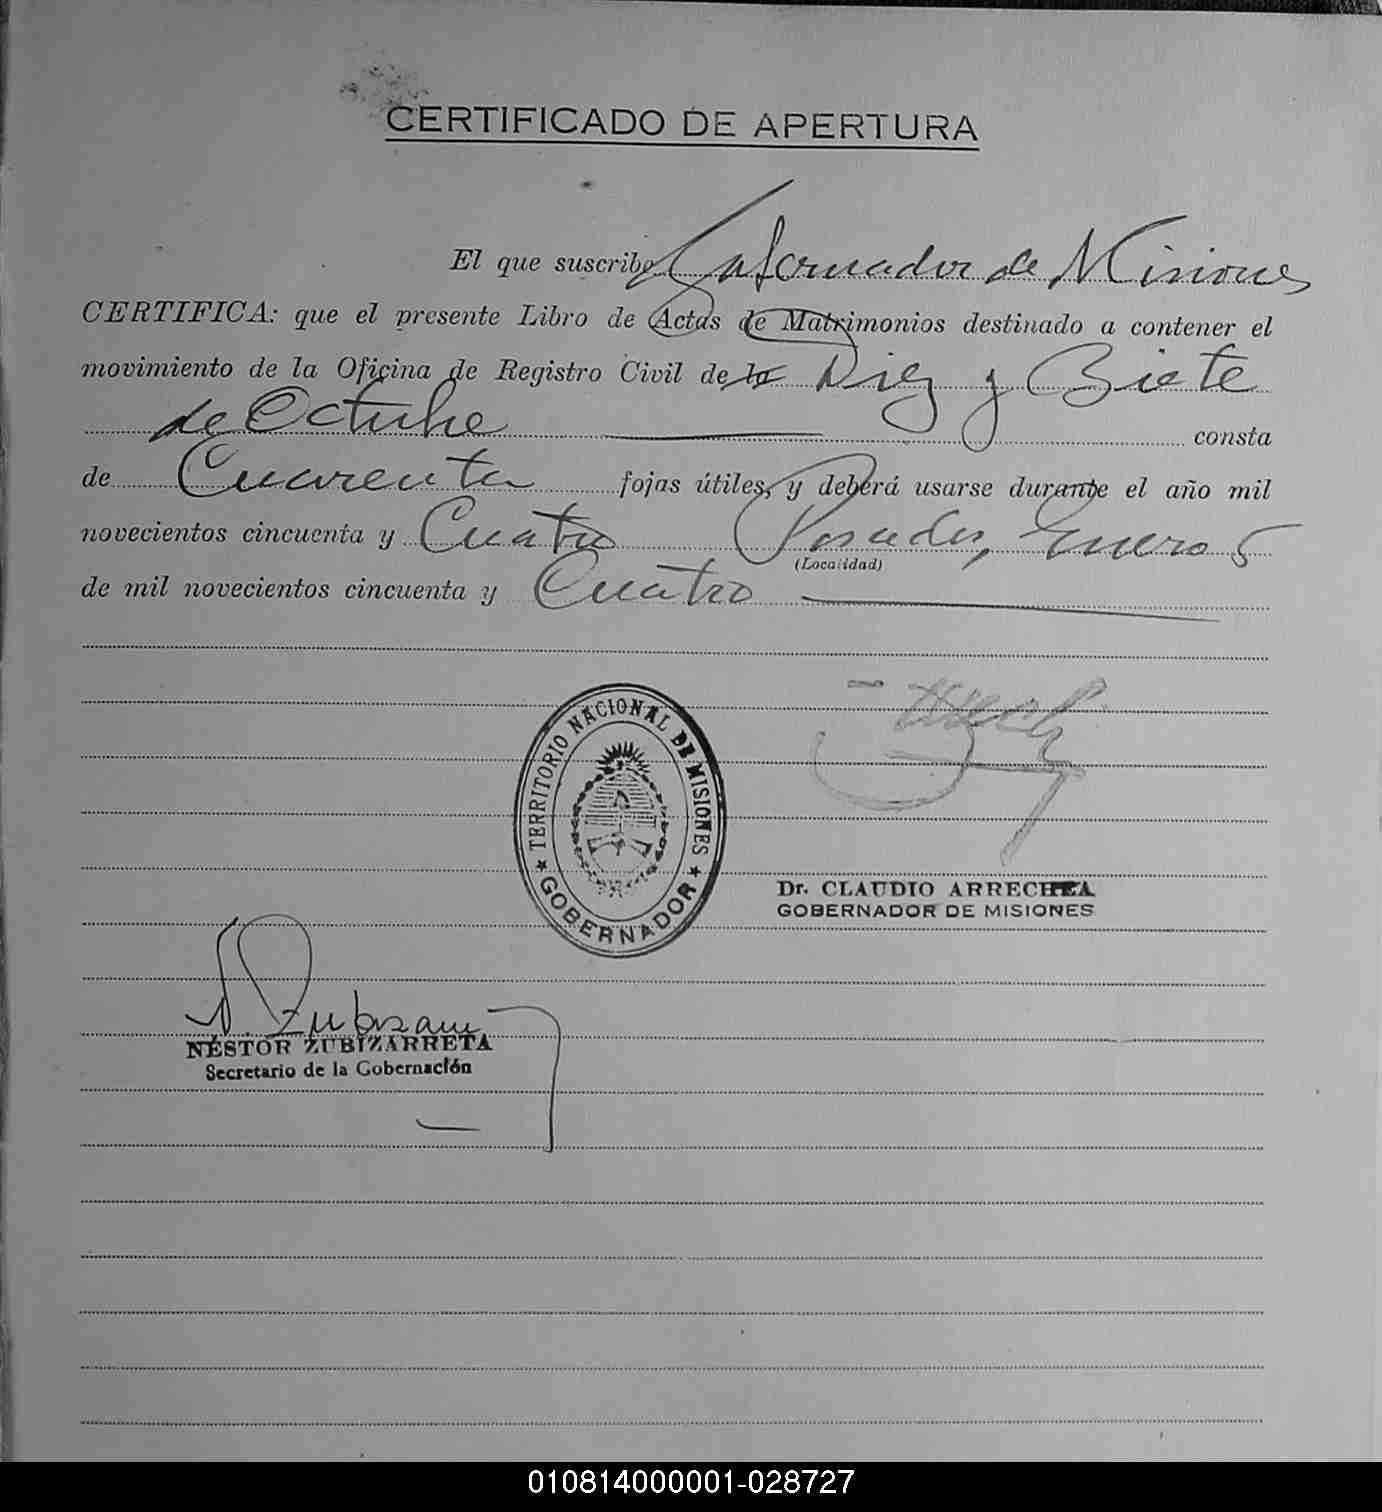 CERTIFICADO DE APERTURA
El que suscribe Gobernador de Misiones
CERTIFICA: que el presente Libro de Actas de Matrimonios destinado a contener el
movimiento de la Oficina de Registro Civil de la Diez y Siete
de Octubre consta
de Cuarenta fojas útiles, y deberá usarse durante el año mil
novecientos cincuenta y Cuatro Posadas, Enero 5
(Localidad)
de mil novecientos cincuenta y Cuatro
TERRITORIO NACIONAL DE MISIONES
GOBERNADOR
Dr. CLAUDIO ARRECHEA
GOBERNADOR DE MISIONES
N. Zubizarreta
NÉSTOR ZUBIZARRETA
Secretario de la Gobernación
010814000001-028727